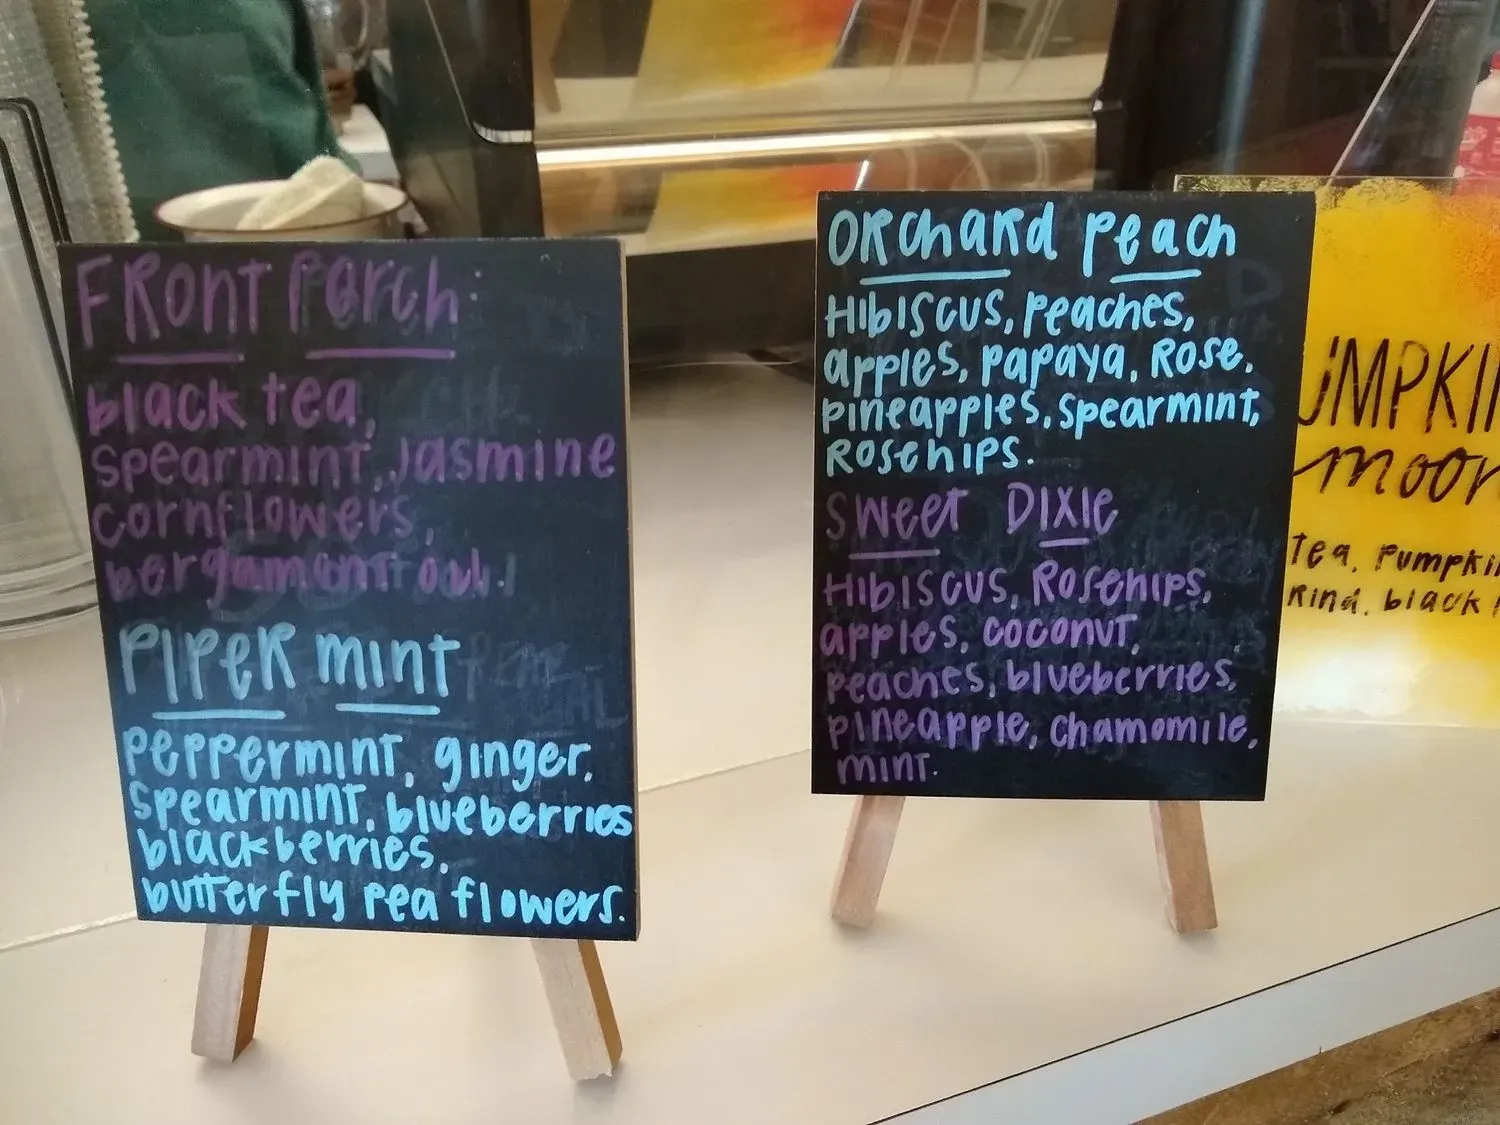 Front Porch
black tea,
spearmint, jasmine
cornflowers,
bergamont oil.
PIPER MINT
peppermint, ginger,
spearmint, blueberries
blackberries,
butterfly pea flowers.
ORCHARD peach
HIBISCUS, peaches,
apples, papaya, Rose,
pineapples, spearmint,
Rosehips.
Sweet DIXIE
HIBISCUS, Rosehips,
apples, coconut,
peaches, blueberries,
pineapple, chamomile,
mint.
moon
Tea, Pumpkin
Rind, black